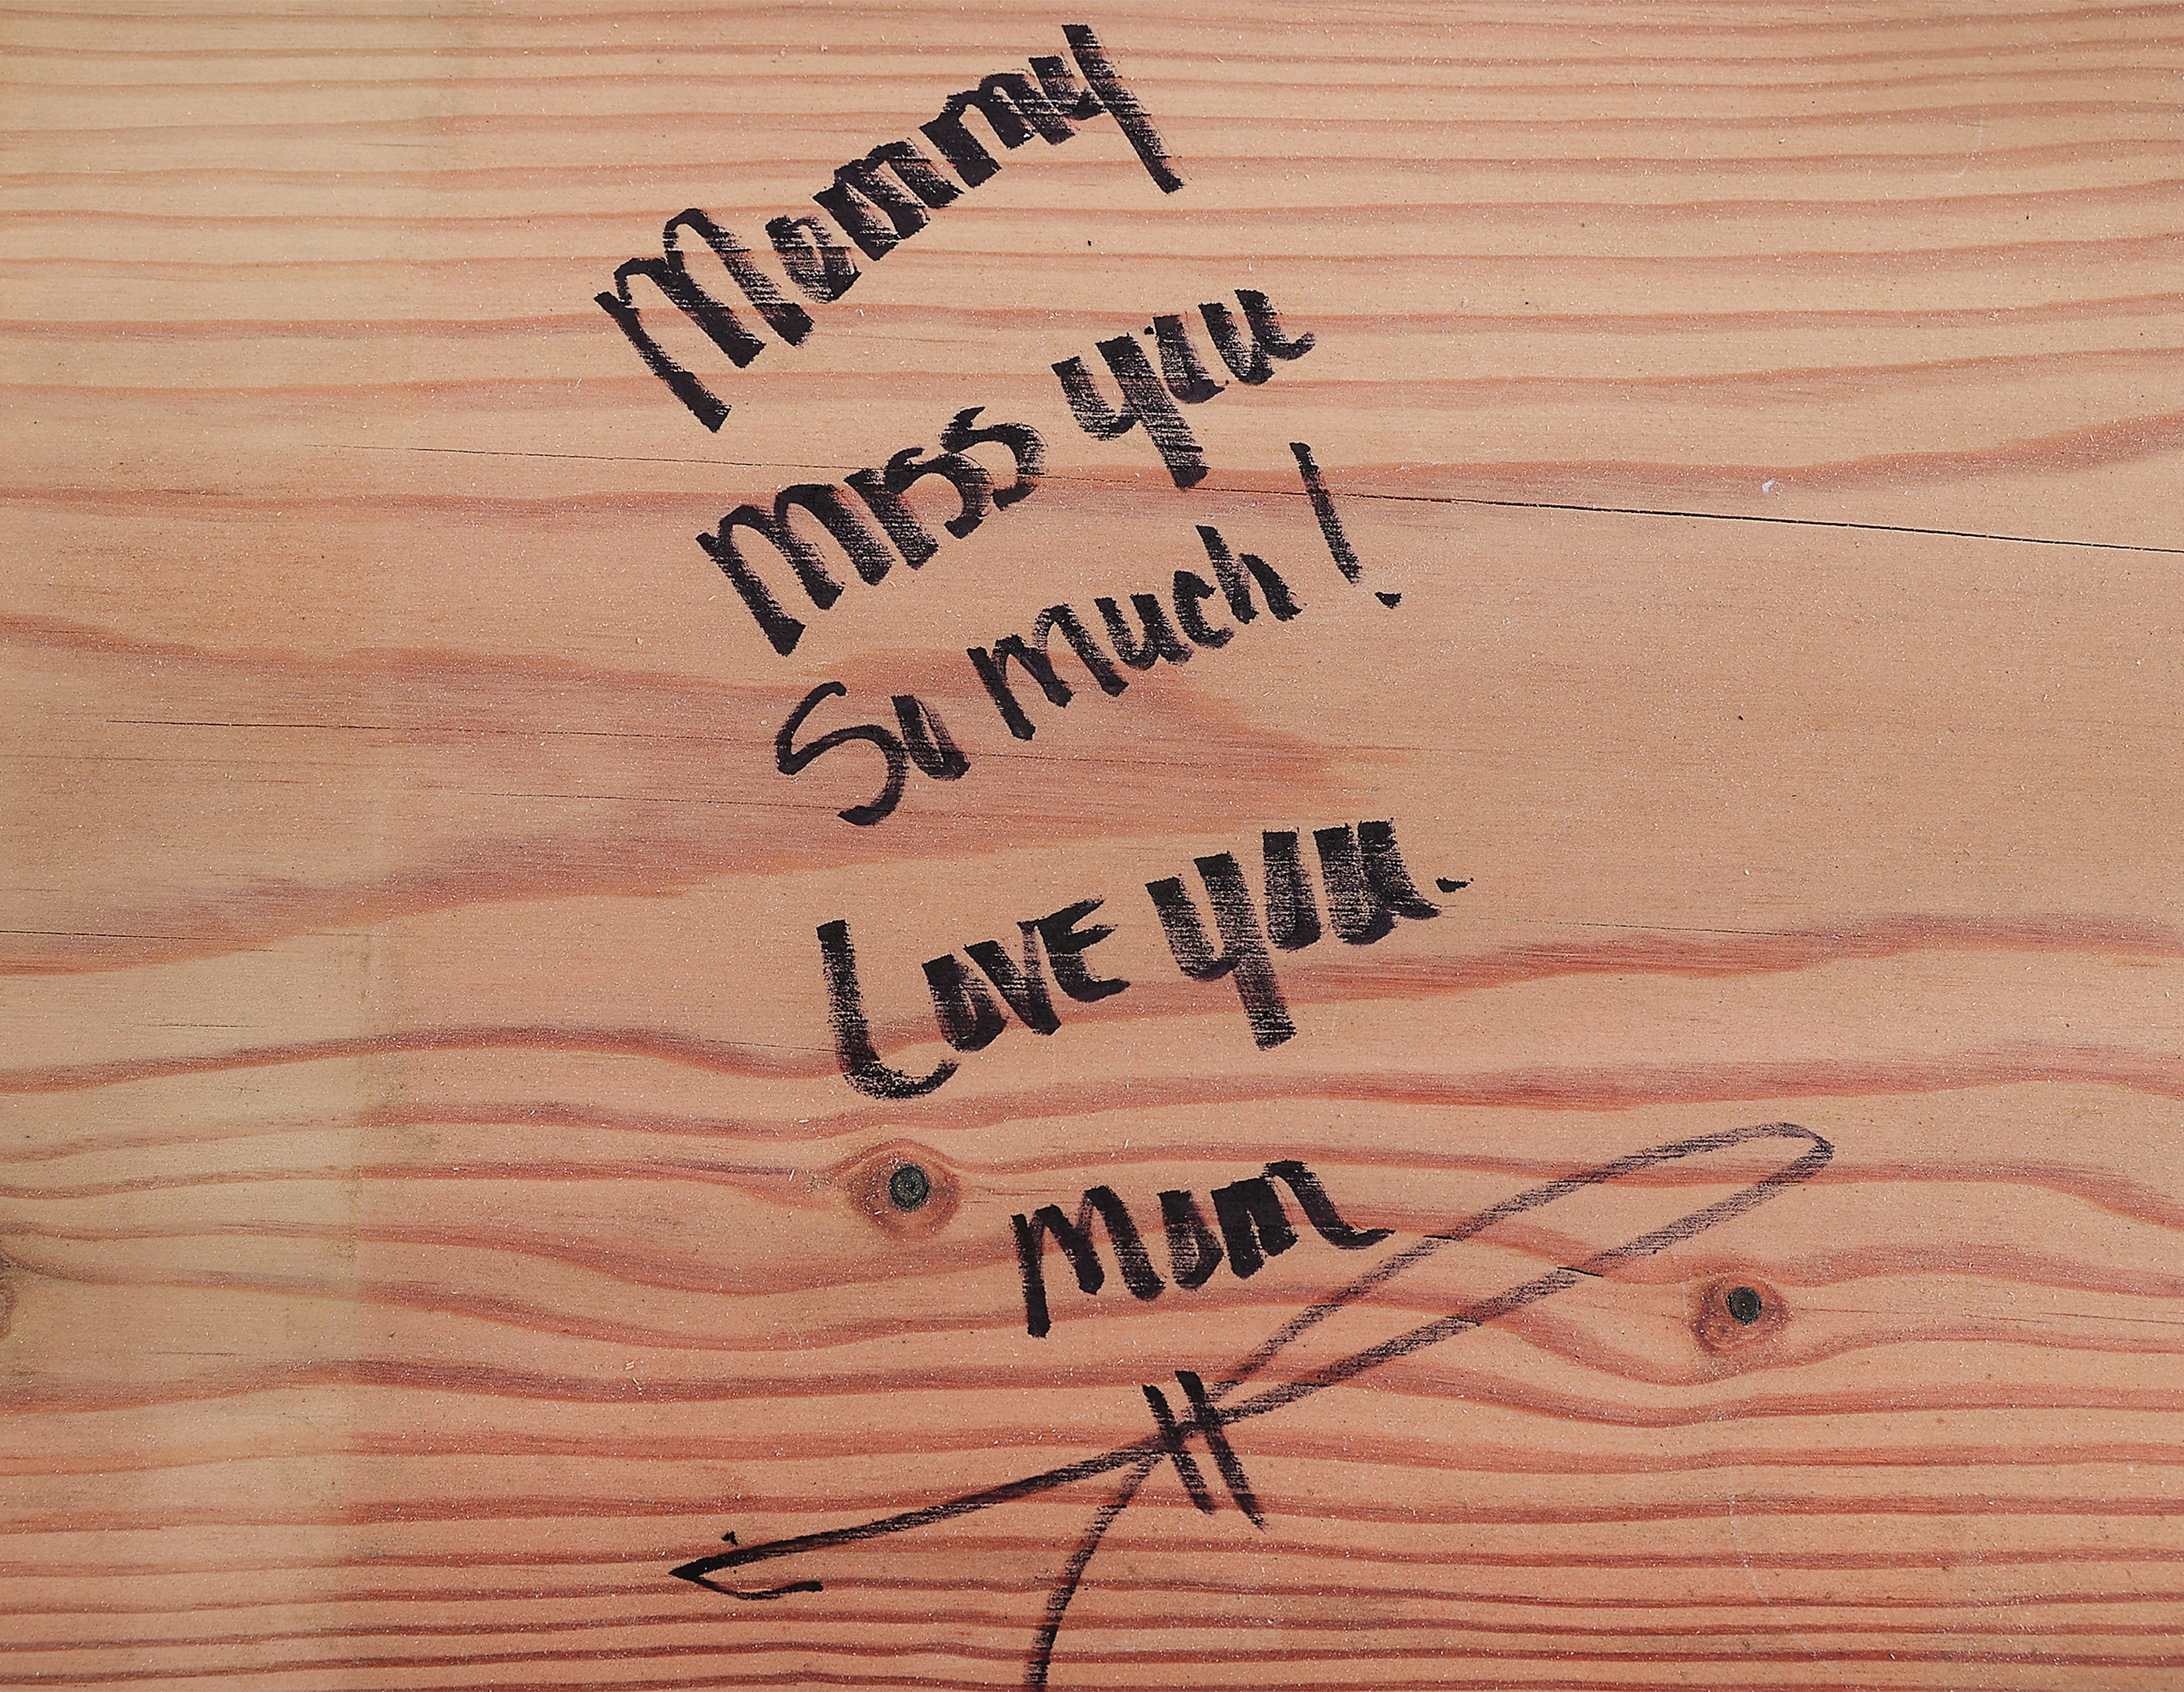 Mommy
Miss you
So much!
Love you.
Mom